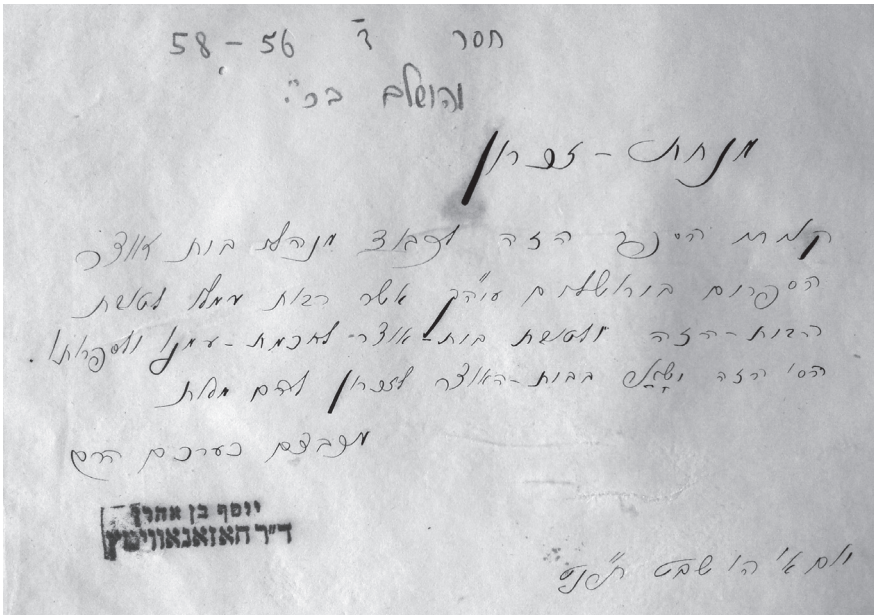 חסר ד 56 – 58
והושלם בכ"י.
מנחת – זכרון
הספר הזה לכבוד מנהלי בית אוצר
הספרים בירושלים עיה״ק אשר רבות עמלו לעשות
הבית – הזה ולעשות בית – אוצר לחכמת – עמנו ולספרותו.
הס׳ הזה ישאר בבית – האוצר לזכרון להם
מכבדם כערכם הרם
יוסף בן אהרן
ד״ר חאזאנאוויטץ
יום א׳ שבט